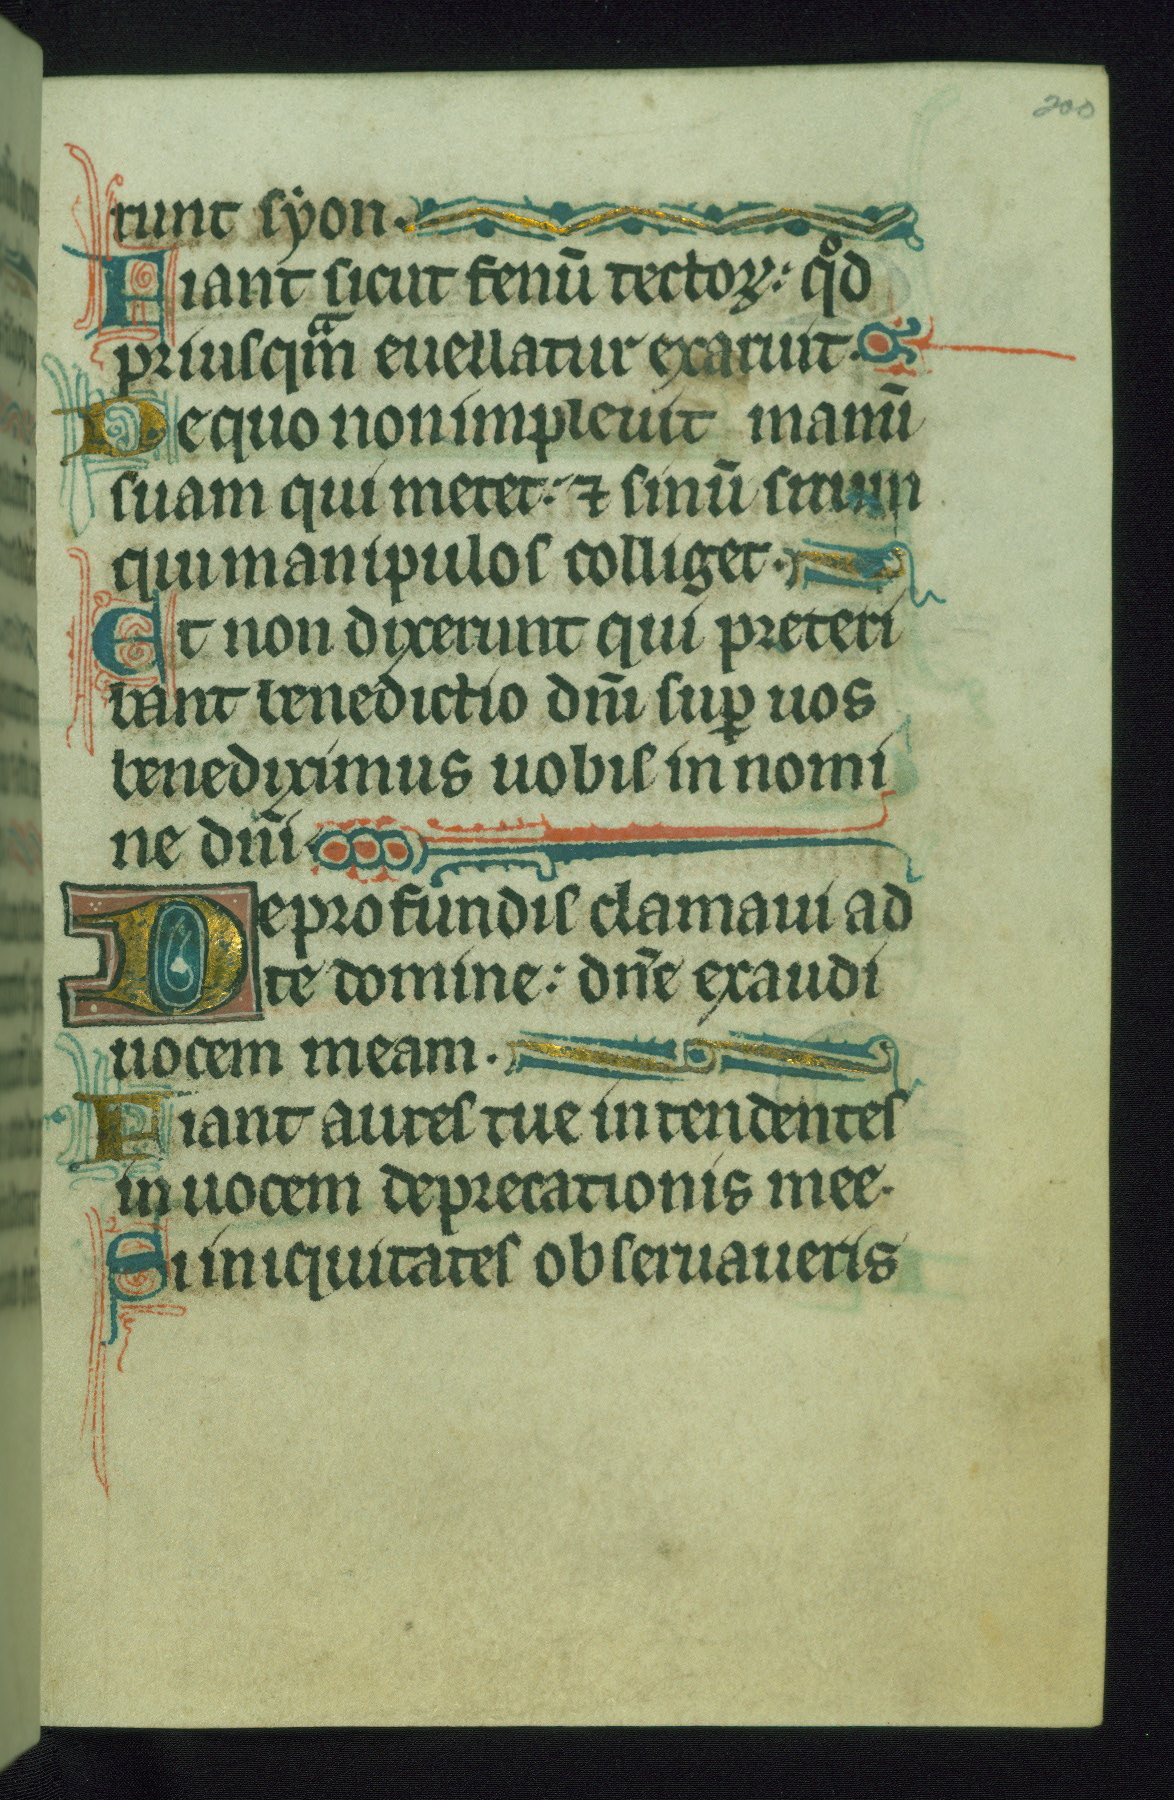 200
runt syon.
Fiant sicut fenū tectoꝝ: qd̊
priusqᵃm̄ euellatur exaruit.
De quo non impleuit manū
suam qui metet: ⁊ sinū suum
qui manipulos colliget.
Et non dixerunt qui preteri
bant benedictio dn̄i suꝑ uos
benediximus uobis in nomi
ne dn̄i
De profundis clamaui ad
te domine: dn̄e exaudi
uocem meam.
Fiant aures tue intendentes
in uocem deprecationis mee.
Si iniquitates obseruaueris